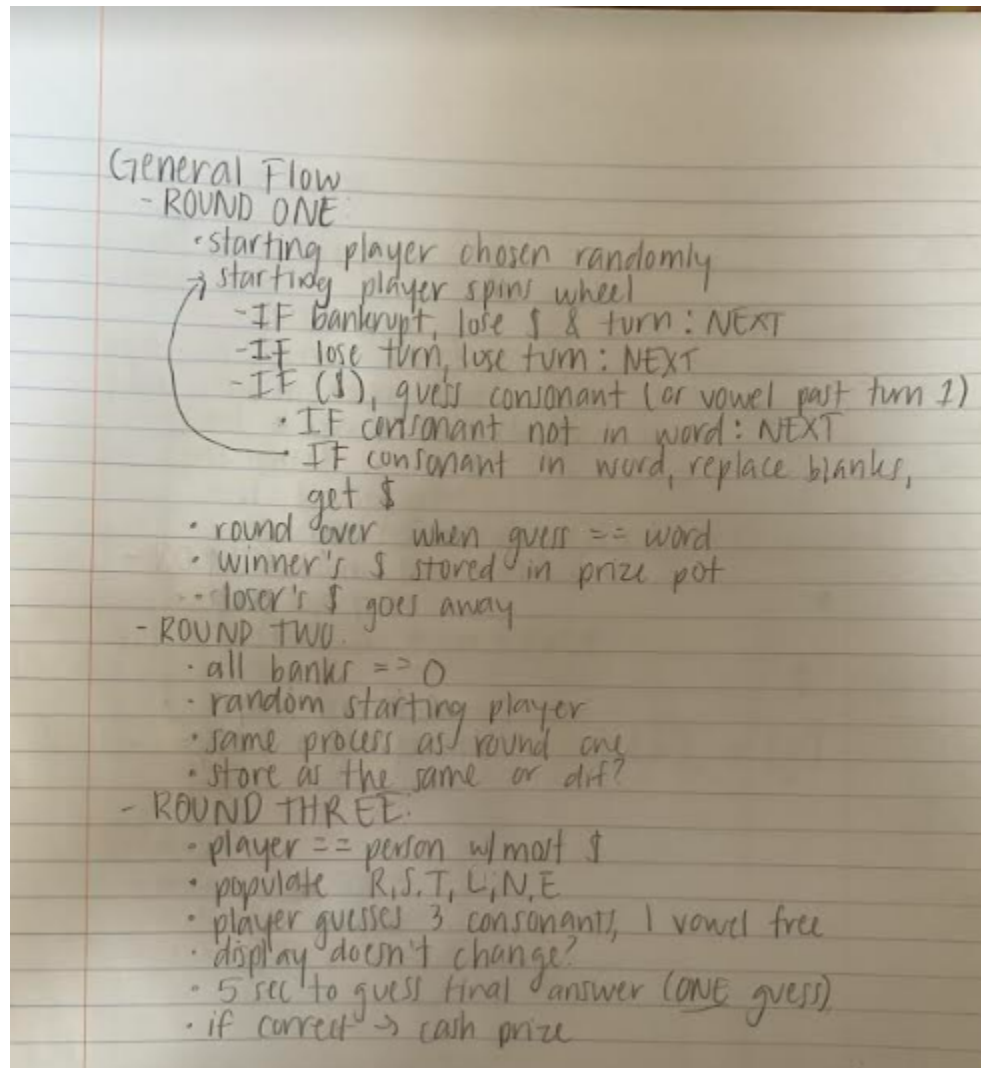 General Flow
- ROUND ONE:
• starting player chosen randomly
→ starting player spins wheel
- IF bankrupt, lose $ & turn : NEXT
- IF lose turn, lose turn : NEXT
- IF ($), guess consonant (or vowel past turn 1)
• IF consonant not in word : NEXT
• IF consonant in word, replace blanks,
get $
• round over when guess == word
• winner's $ stored in prize pot
• loser's $ goes away
- ROUND TWO:
• all banks => 0
• random starting player
• same process as round one
• store as the same or dif?
- ROUND THREE:
• player == person w/ most $
• populate R,S,T,L,N,E
• player guesses 3 consonants, 1 vowel free
• display doesn't change?
• 5 sec to guess final answer (ONE guess)
• if correct → cash prize